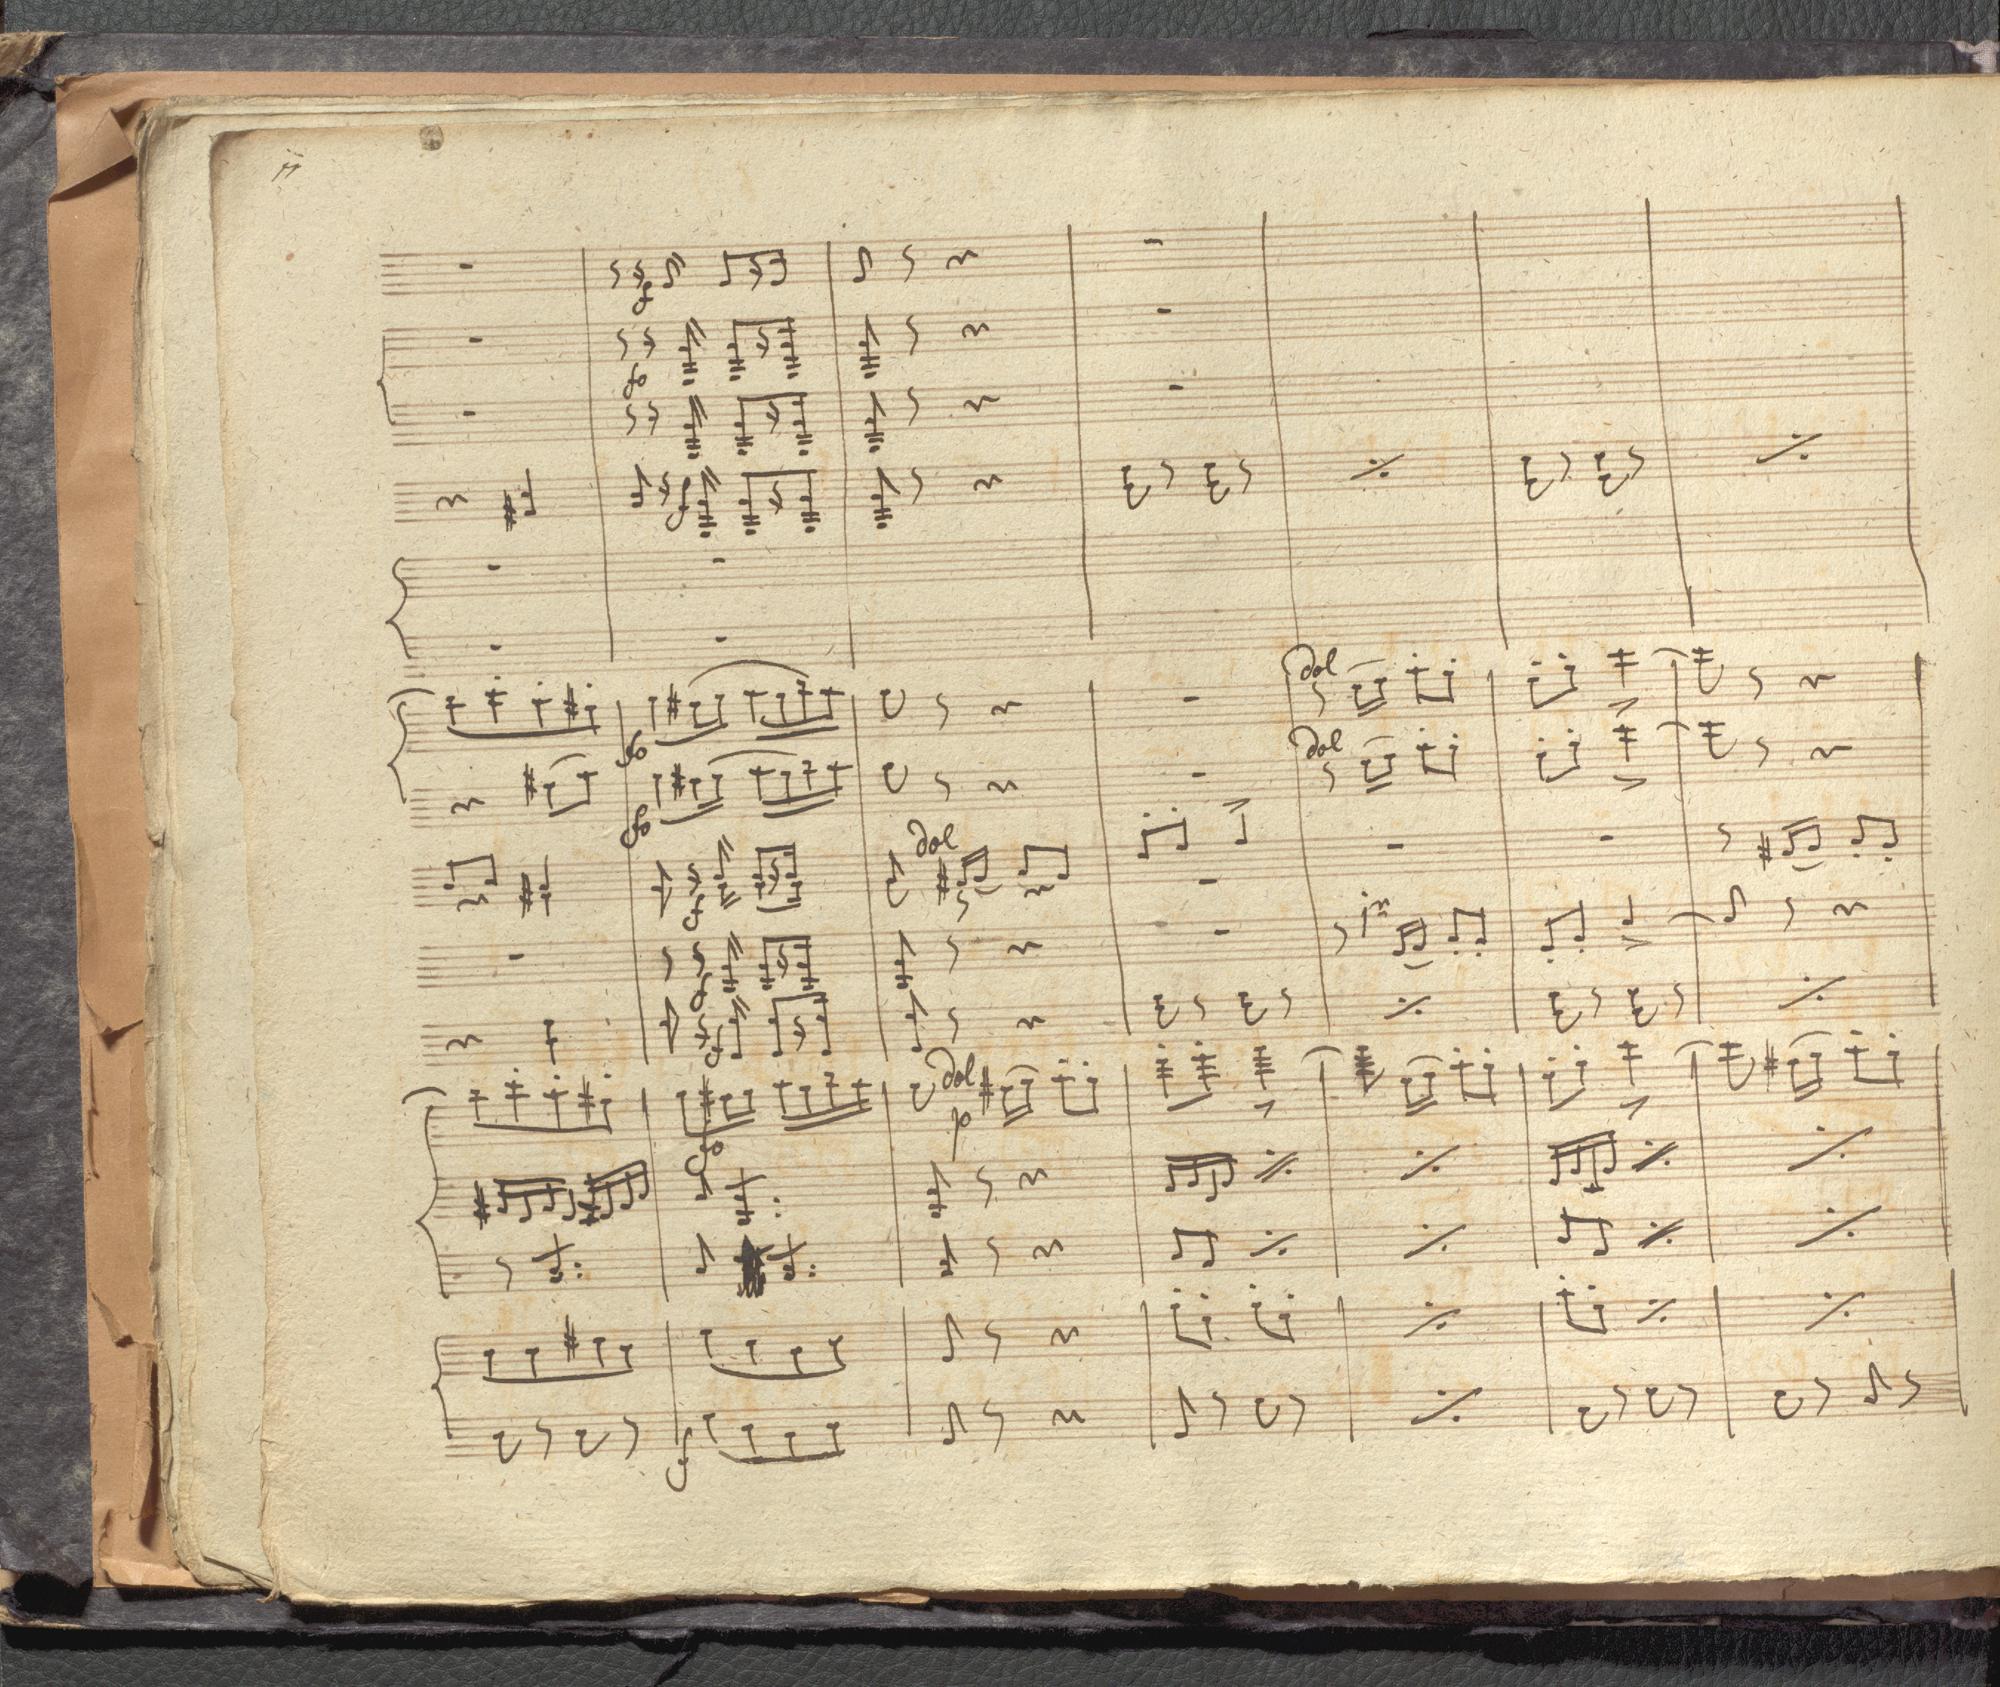 f
fo
f
dol
fo
dol
fo
dol
f
f
f
dol
p
fo
f